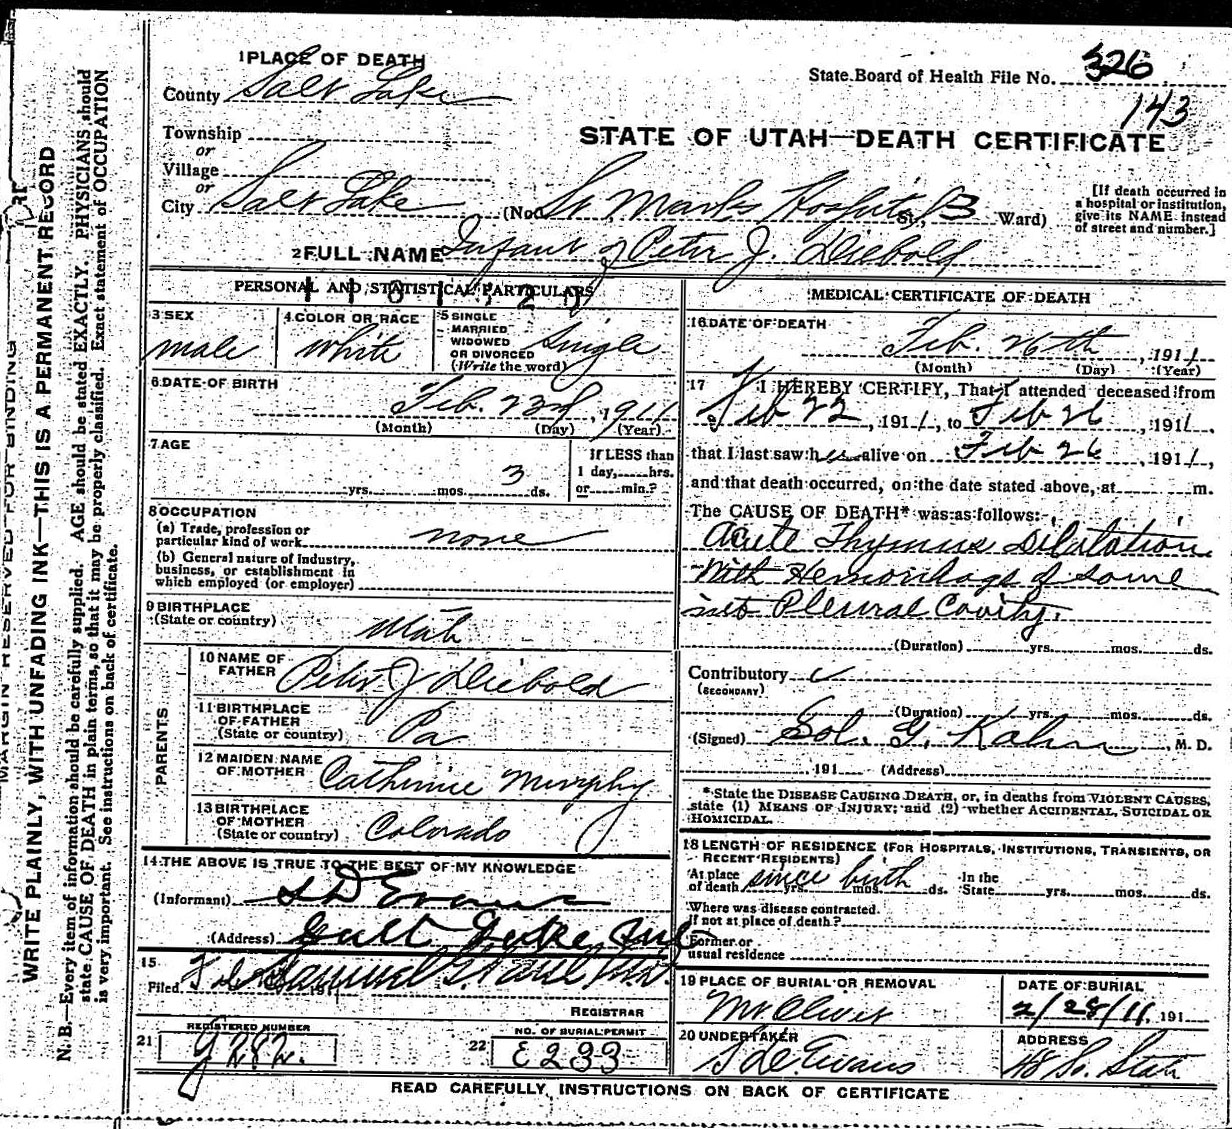 1 PLACE OF DEATH
County Salt Lake
State Board of Health File No. 326
143
Township
or
Village
or
STATE OF UTAH—DEATH CERTIFICATE
City Salt Lake (No. St Marks Hospital St., 3 Ward)
[If death occurred in
a hospital or institution,
give its NAME instead
of street and number.]
2 FULL NAME Infant of Peter J. Diebold
PERSONAL AND STATISTICAL PARTICULARS
3 SEX
male
4 COLOR OR RACE
White
5 SINGLE
MARRIED
WIDOWED
OR DIVORCED
(Write the word)
Single
6 DATE OF BIRTH
Feb. 23rd, 1911
(Month) (Day) (Year)
7 AGE
yrs. mos. 3 ds.
If LESS than
1 day, hrs.
or min.?
8 OCCUPATION
(a) Trade, profession or
particular kind of work none
(b) General nature of Industry,
business, or establishment in
which employed (or employer)
9 BIRTHPLACE
(State or country) Utah
PARENTS
10 NAME OF
FATHER Peter J Diebold
11 BIRTHPLACE
OF FATHER
(State or country) Pa
12 MAIDEN NAME
OF MOTHER Catherine Murphy
13 BIRTHPLACE
OF MOTHER
(State or country) Colorado
14 THE ABOVE IS TRUE TO THE BEST OF MY KNOWLEDGE
(Informant) S D Evans
(Address) Salt Lake City
15
Filed 191
REGISTRAR
21 REGISTERED NUMBER
G 282.
22 NO. OF BURIAL PERMIT
E233
MEDICAL CERTIFICATE OF DEATH
16 DATE OF DEATH
Feb. 26th, 1911
(Month) (Day) (Year)
17 I HEREBY CERTIFY, That I attended deceased from
Feb 22, 1911, to Feb 26, 1911,
that I last saw alive on Feb 26, 1911,
and that death occurred, on the date stated above, at m.
The CAUSE OF DEATH* was as follows:
Acute Thymus Dilatation
With Hemorrhage of same
into Pleural Cavity.
(Duration) yrs. mos. ds.
Contributory
(SECONDARY)
(Duration) yrs. mos. ds.
(Signed) Sol. G. Kahn, M. D.
191 (Address)
*State the DISEASE CAUSING DEATH, or, in deaths from VIOLENT CAUSES,
state (1) MEANS OF INJURY; and (2) whether ACCIDENTAL, SUICIDAL OR
HOMICIDAL.
18 LENGTH OF RESIDENCE (FOR HOSPITALS, INSTITUTIONS, TRANSIENTS, OR
RECENT RESIDENTS)
At place
of death since birth yrs. mos. ds. In the
State yrs. mos. ds.
Where was disease contracted.
If not at place of death?
Former or
usual residence
19 PLACE OF BURIAL OR REMOVAL
Mt Olivet
DATE OF BURIAL
2/28/11 191
20 UNDERTAKER
S D Evans
ADDRESS
48 So. State
READ CAREFULLY, INSTRUCTIONS ON BACK OF CERTIFICATE
MARGIN RESERVED FOR BINDING
WRITE PLAINLY, WITH UNFADING INK—THIS IS A PERMANENT RECORD
N. B.—Every item of information should be carefully supplied. AGE should be stated EXACTLY. PHYSICIANS should
state CAUSE OF DEATH in plain terms, so that it may be properly classified. Exact statement of OCCUPATION
is very important. See instructions on back of certificate.